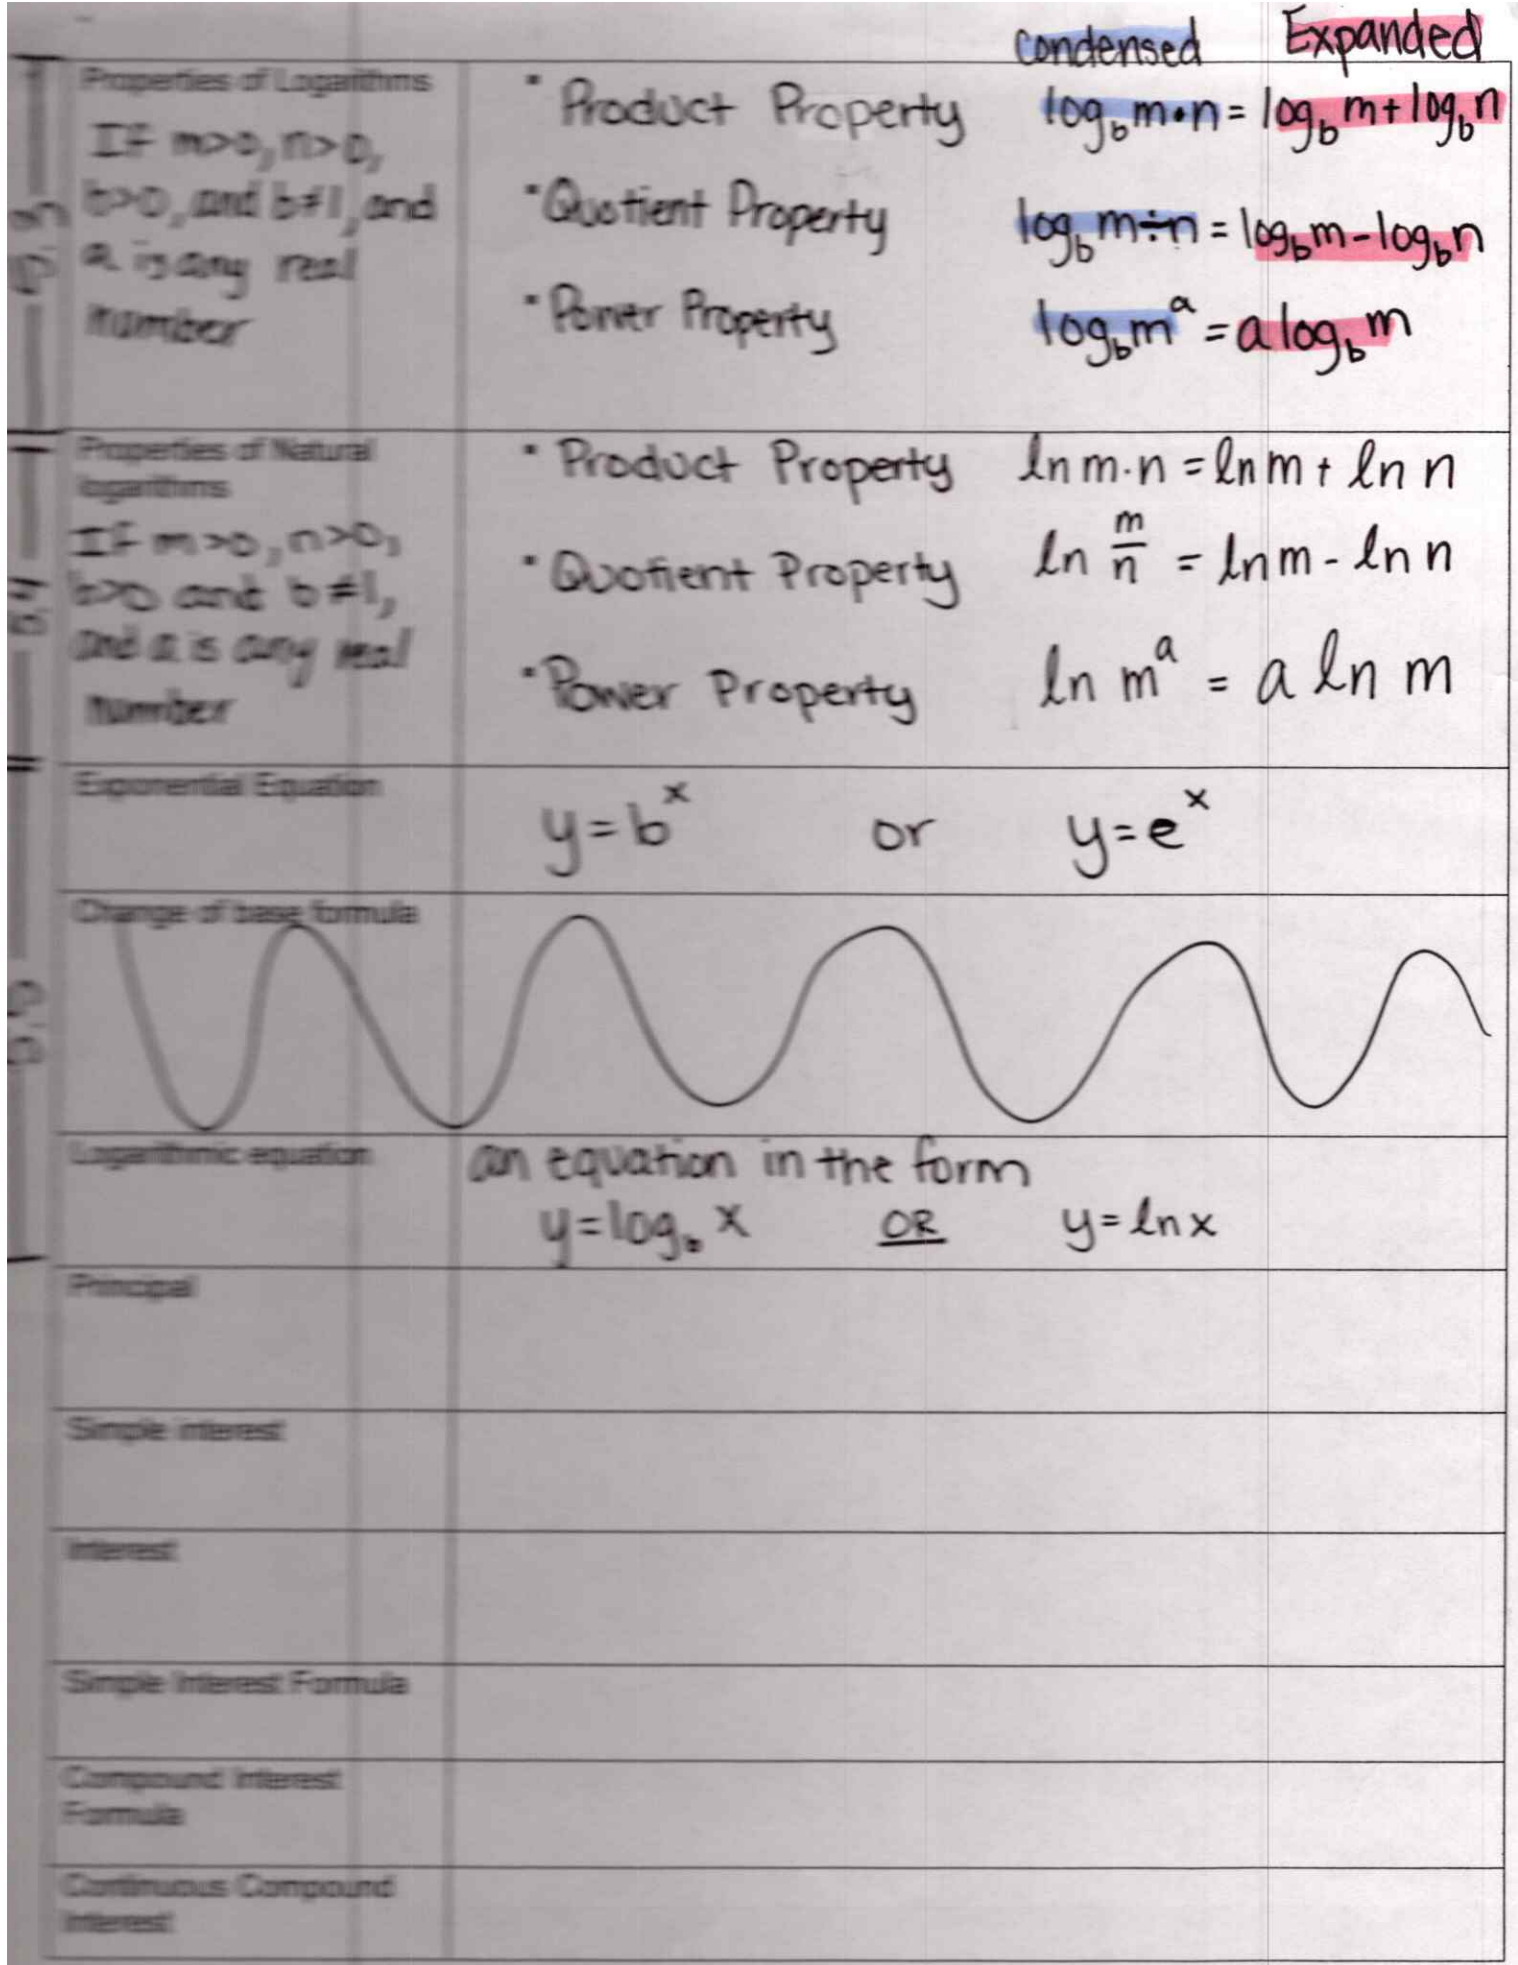 condensed Expanded
Properties of Logarithms
If m>0, n>0,
b>0, and b≠1, and
a is any real
number
· Product Property log_b m·n = log_b m + log_b n
· Quotient Property log_b m÷n = log_b m - log_b n
· Power Property log_b m^a = a log_b m
Properties of Natural
logarithms
If m>0, n>0,
b>0 and b≠1,
and a is any real
number
· Product Property ln m·n = ln m + ln n
· Quotient Property ln m/n = ln m - ln n
· Power Property ln m^a = a ln m
Exponential Equation
y = b^x or y = e^x
Change of base formula
Logarithmic equation
an equation in the form
y = log_b x OR y = ln x
Principal
Simple interest
Interest
Simple Interest Formula
Compound Interest
Formula
Continuous Compound
Interest